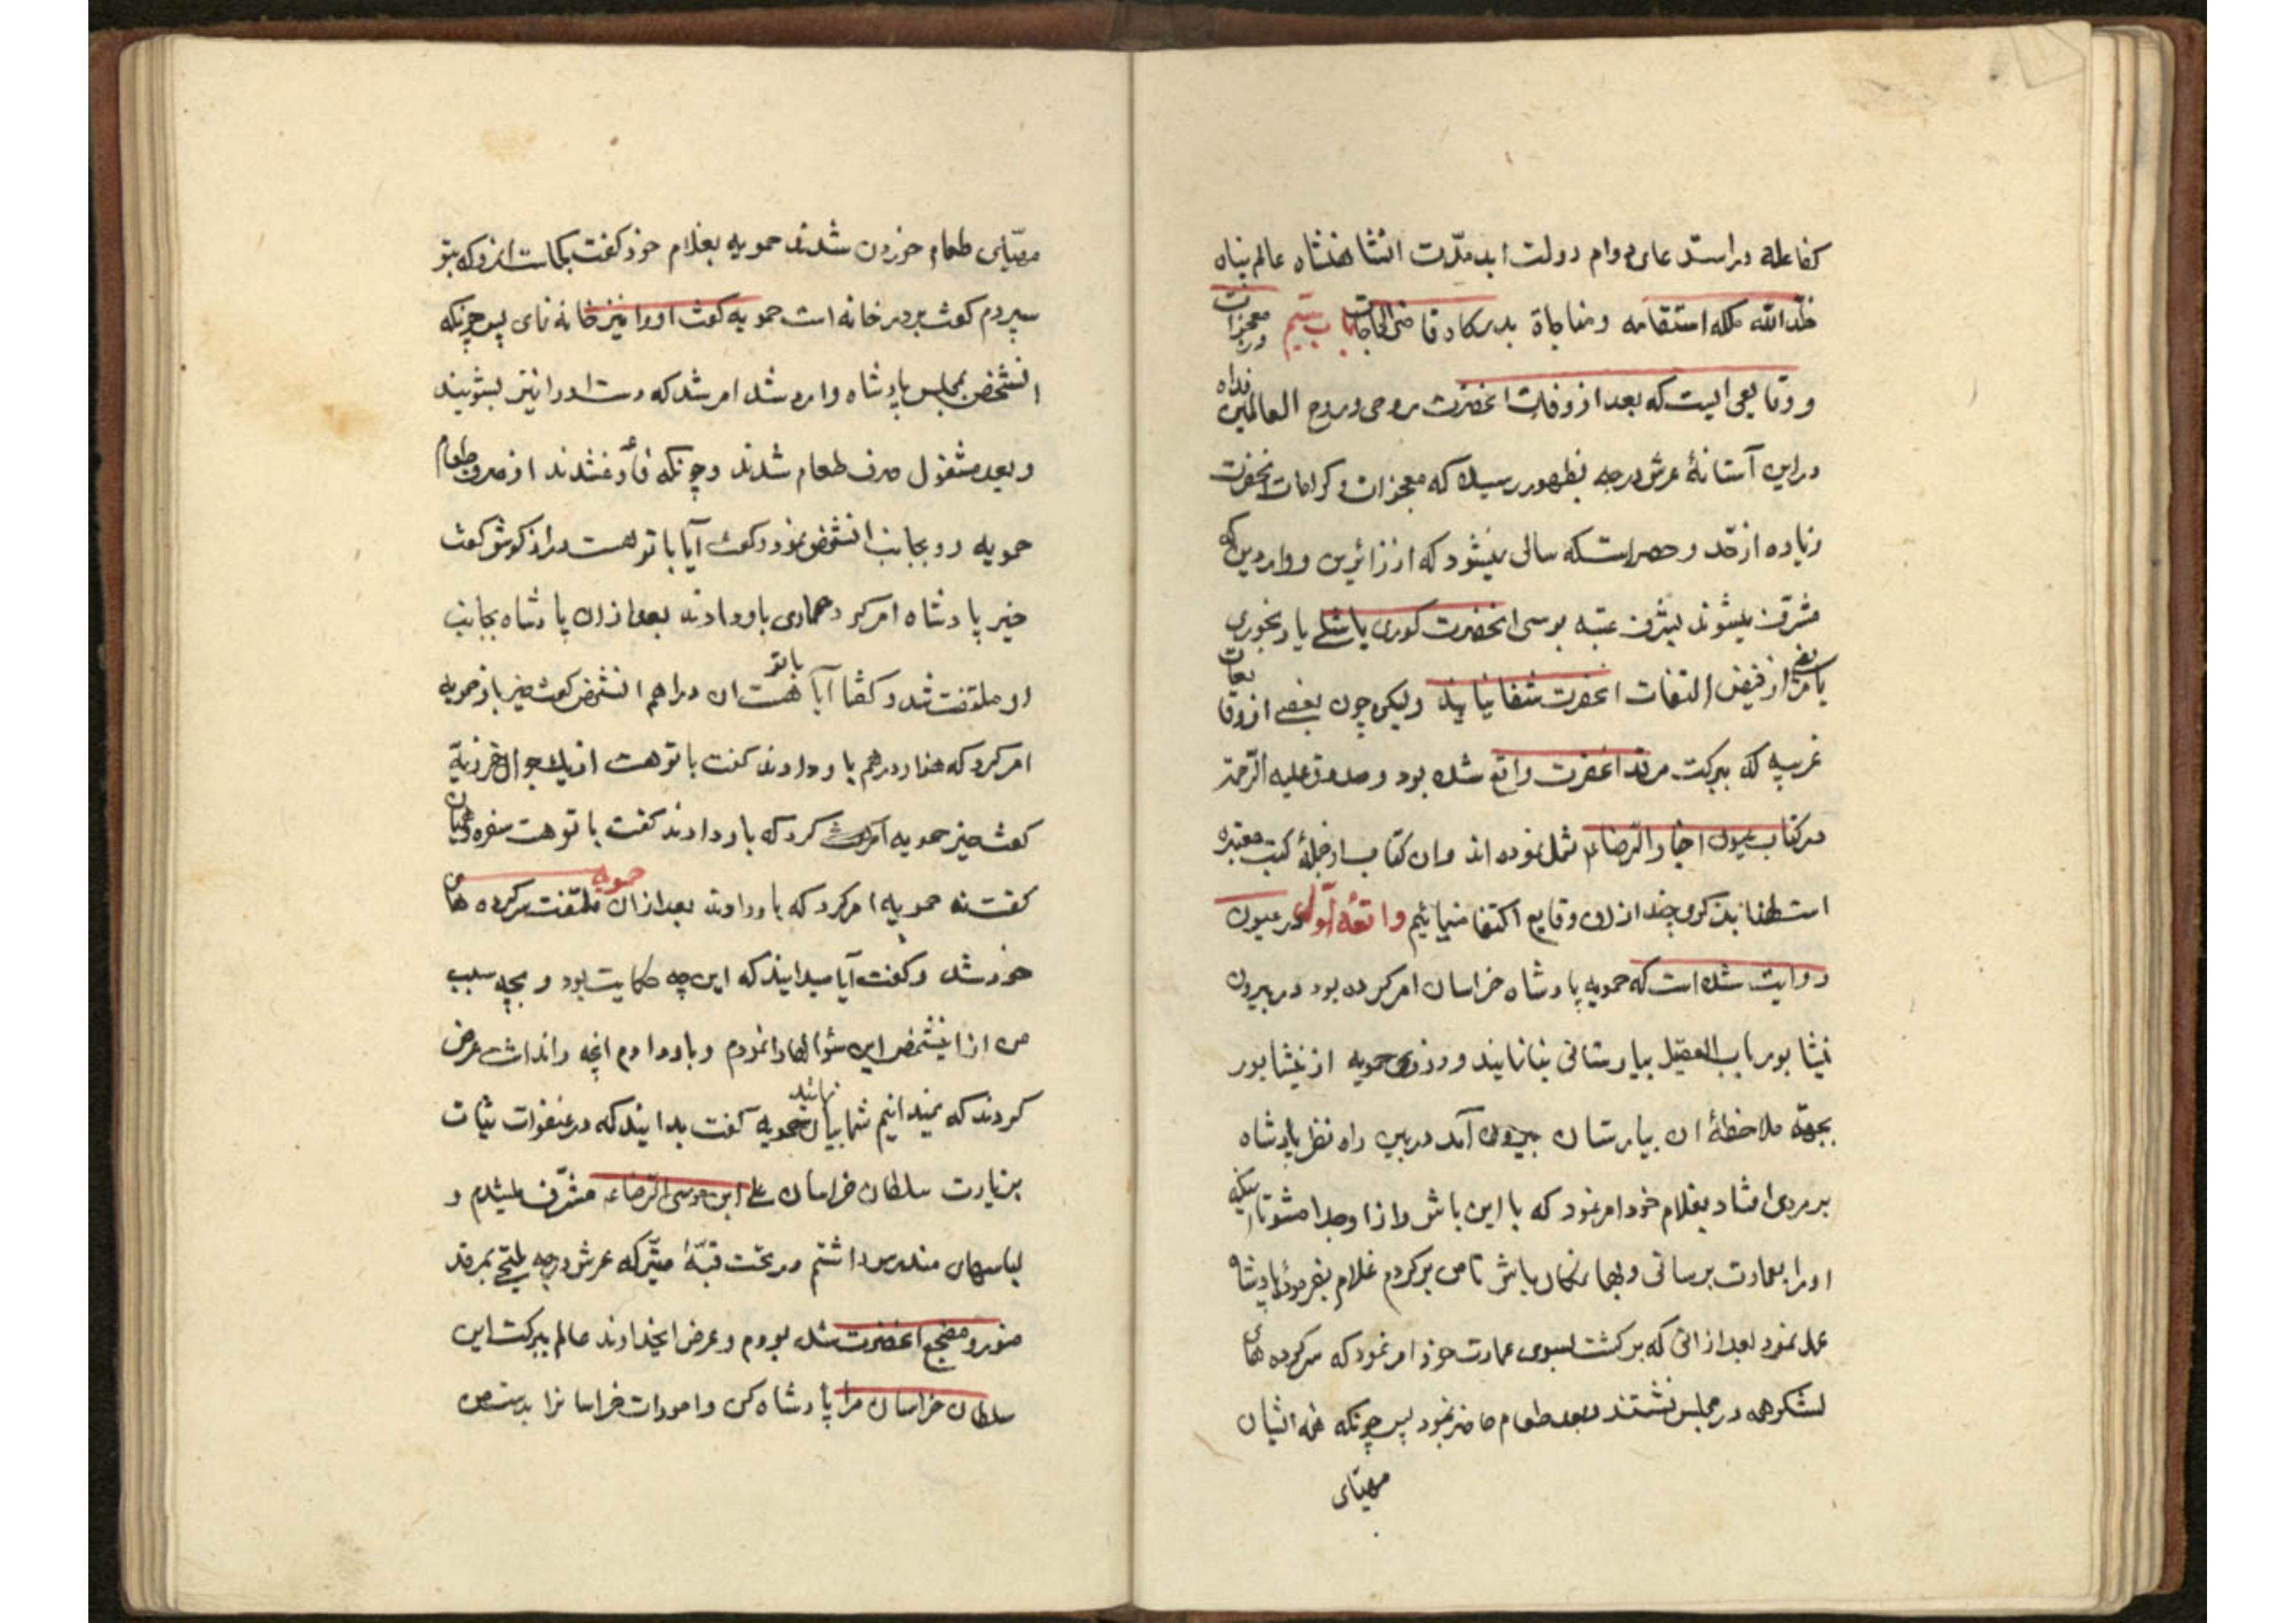 کفاعله دراستدعای دوام دولت ابدمدّت انشاهنشاه عالم پناه
خلّدالله ملکه استقامه ومناجاة بدرکاه قاضی الحاجات باب سیّم در معجزات
و وقایعی الیست که بعد از وفات انحضرت روحی وروح العالمین فداه
دراین آستانهٔ عرش درجه بظهور رسیده که معجزات و کرامات انحضرت
زیاده ازحدّ و حصراستکه سالی نمیشود که از زائرین وواردین که
مشرّف میشوند بشرف عتبه بوسی انحضرت کوری یا شلی یا رنجوری
یا مریضی از فیض التفات انحضرت شفا نیابند ولیکن چون بعضی از وقایعات
غریبه که ببرکت مرقد انحضرت واقع شده بود و صدوق علیه الرّحمة
درکتاب عیون اخبار الرّضاء نقل نموده اند وان کتاب ازجملهٔ کتب معتبره
است لهذا بذکری چند ازان وقایع اکتفا مینمائیم واقعهٔ اوّلی در عیون
روایت شده است که حمویه پادشاه خراسان امر کرده بود در بیرون
نیشابور بباب العقیل بیمارستانی بنا نمایند و روزی حمویه از نیشابور
بجهة ملاحظهٔ ان بیمارستان بیرون آمد دربین راه نظر پادشاه
بر مردی افتاد بغلام خود امر نمود که با این باش و ازاو جدا مشو تا اینکه
اورا بعمارت برسانی و بهما نمکان باش تا من برکردم غلام بفرمودهٔ پادشاه
عمل نمود بعد ازانی که برکشت بسوی عمارت خود امر نمود که سرکرده های
لشکرهمه درمجلس نشستند وبعد طعام حاضر نمود پس چونکه همه ایشان
مهیّای
مهیّای طعام خوردن شدند حمویه بغلام خود کفت بکجاست انمرد که بتو
سپردم کفت بر در خانه است حمویه کفت اورا نیز خانه نمای پس چونکه
انشخص بمجلس پادشاه وارد شد امر شد که دست اورا نیز بشویند
وبعد مشغول صرف طعام شدند وچونکه فارغ شدند از صرف طعام
حمویه رو بجانب انشخص نمود وکفت آیا با تو هست دراز کوش کفت
خیر پادشاه امر کرد حماری باو دادند بعد ازان پادشاه بجانب
او ملتفت شد و کفتا آیا با تو هست ان دراهم انشخص کفت خیر باز حمویه
امر کرد که هزار درهم باو دادند کفت با تو هست از یک جوال خوزیة
کفت خیر حمویه امر کرد که باو دادند کفت با تو هست سفره
کفت نه حمویه امر کرد که باو دادند بعد ازان حمویه ملتفت سرکرده های
خود شد و کفت آیا میدانید که این چه حکایت بود و بچه سبب
من از اینشخص این سؤالها را نمودم و باو دادم انچه را نداشت عرض
کردند که نمیدانیم شما بیان نمائید حمویه کفت بدانید که در عنفوان شباب
بزیارت سلطان خراسان علی ابن موسی الرّضاء مشرّف میشدم و
لباسهای مندرس داشتم در تحت قبّهٔ متبرکه عرش درجه ملتجی بمرقد
منور و مضجع انحضرت شده بودم و عرض ایخداوند عالم ببرکت این
سلطان خراسان مرا پادشاه کن و امورات خراسانرا بدست من